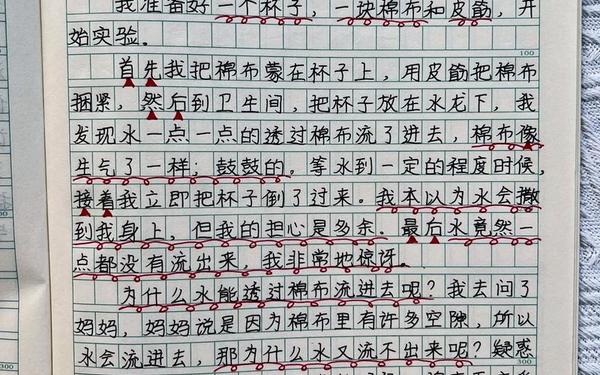 我准备好一个杯子，一块棉布和皮筋，开
始实验。
100
首先我把棉布蒙在杯子上，用皮筋把棉布
捆紧，然后到卫生间，把杯子放在水龙下，我
发现水一点一点的透过棉布流了进去，棉布像
生气了一样；鼓鼓的。等水到一定的程度时候，
接着我立即把杯子倒了过来。我本以为水会撒
到我身上，但我的担心是多余。最后水竟然一
点都没有流出来，我非常地惊讶。
为什么水能透过棉布流进去呢？我去问了
妈妈，妈妈说是因为棉布里有许多空隙，所以
水会流进去，那为什么水又流不出来呢？疑惑
300